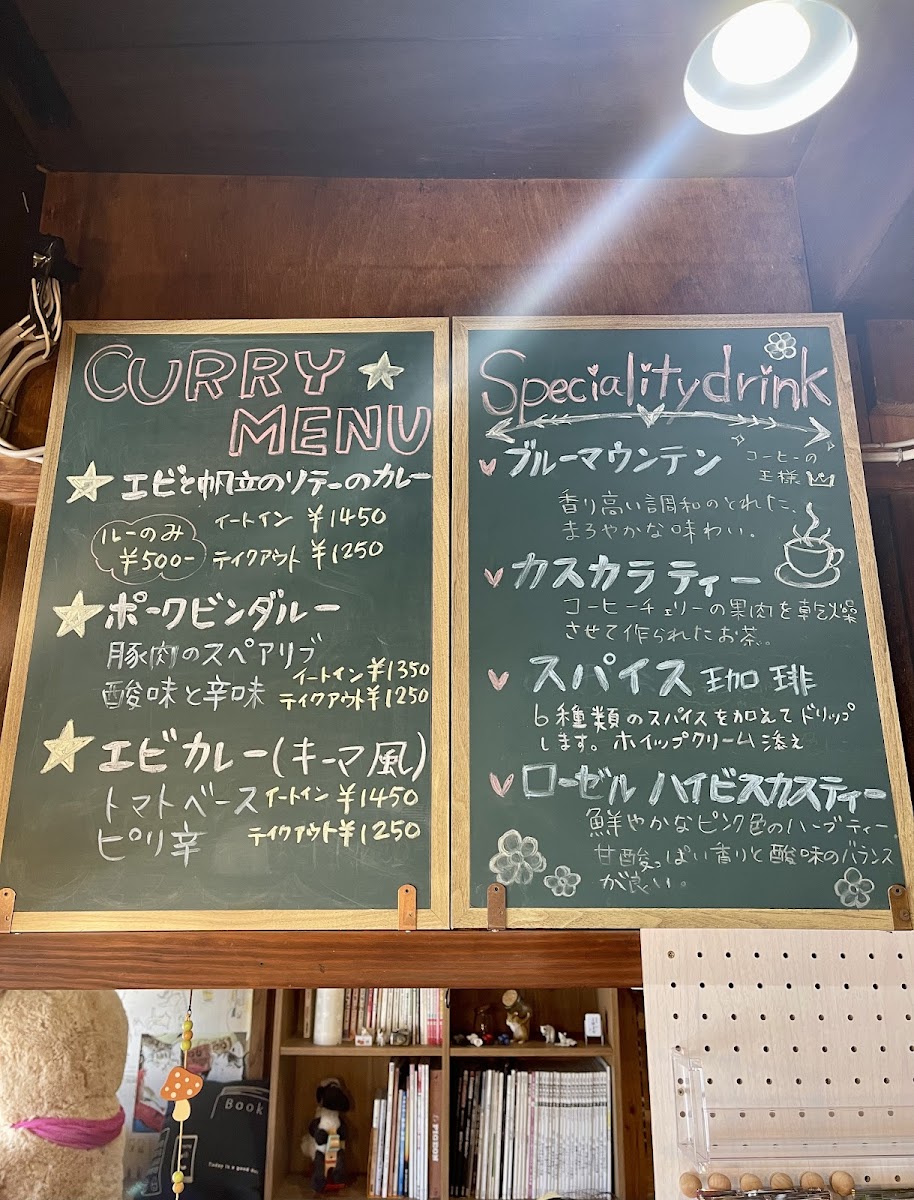 CURRY
MENU
エビと帆立のソテーのカレー
イートイン ¥1450
ルーのみ
¥500-
テイクアウト ¥1250
ポークビンダルー
豚肉のスペアリブ
イートイン ¥1350
酸味と辛味
テイクアウト ¥1250
エビカレー(キーマ風)
トマトベース
イートイン ¥1450
ピリ辛
テイクアウト ¥1250
Specialitydrink
ブルーマウンテン
コーヒーの
王様
香り高い調和のとれた、
まろやかな味わい。
カスカラティー
コーヒーチェリーの果肉を乾燥
させて作られたお茶。
スパイス珈琲
6種類のスパイスを加えてドリップ
します。ホイップクリーム添え
ローゼル ハイビスカスティー
鮮やかなピンク色のハーブティー
甘酸っぱい香りと酸味のバランス
が良い。
Book
Today is a good
PIGEON